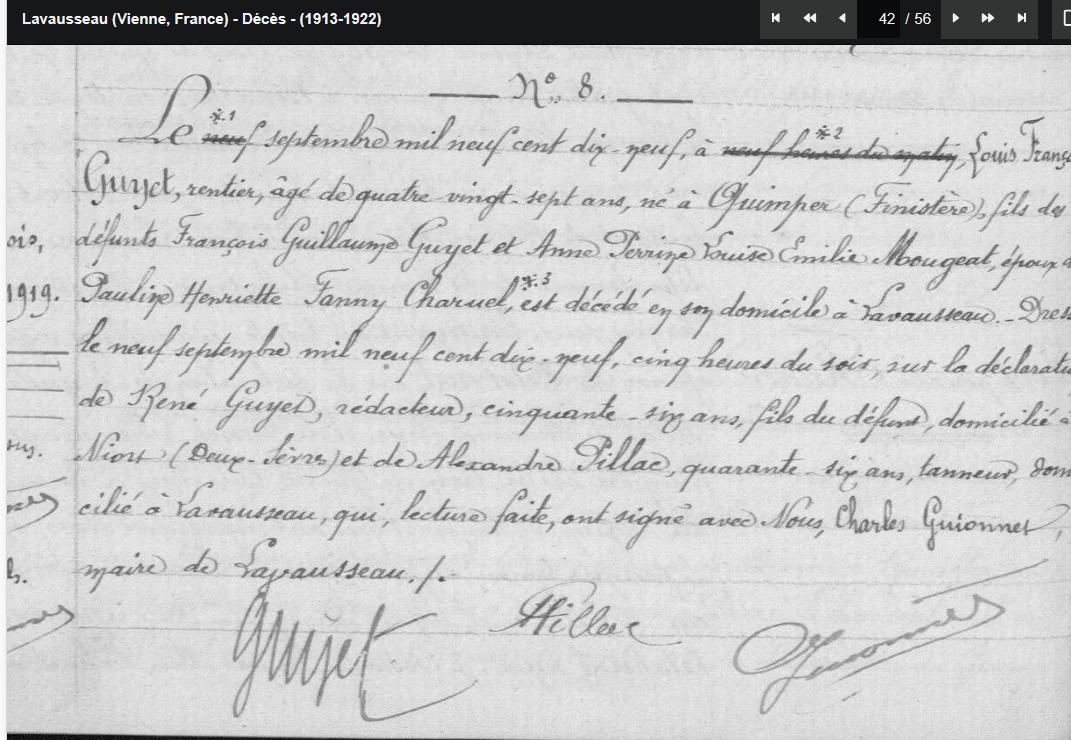 Lavausseau (Vienne, France) - Décès - (1913-1922)
42 / 56
N° 8.
*1 *2
Le neuf septembre mil neuf cent dix-neuf, à neuf heures du matin, Louis Franç
Guyet, rentier, âgé de quatre-vingt-sept ans, né à Quimper (Finistère), fils des
ois, défunts François Guillaume Guyet et Anne Perrine Louise Emilie Mougeat, époux d
1919. Pauline Henriette Fanny Charuel, *3 est décédé en son domicile à Lavausseau. - Dres
le neuf septembre mil neuf cent dix-neuf, cinq heures du soir, sur la déclarati
de René Guyet, rédacteur, cinquante-six ans, fils du défunt, domicilié à
Niort (Deux-Sèvres) et de Alexandre Pillac, quarante-six ans, tanneur, dom
cilié à Lavausseau, qui, lecture faite, ont signé avec Nous, Charles Guionnet,
maire de Lavausseau./.
Guyet Pillac Guionnet